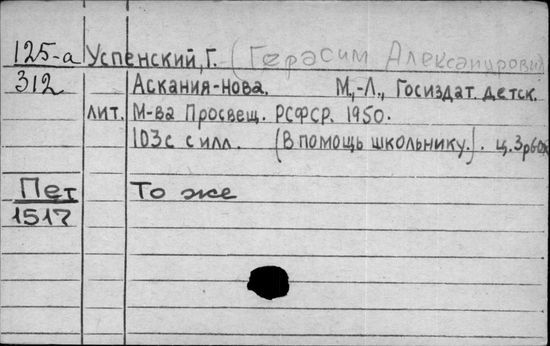 125-а Успенский, Г. (Герасим Александрович)
312 Аскания-Нова. М.,-Л., Госиздат. детск.
лит. М-ва Просвещ. РСФСР. 1950.
103 с с илл. (В помощь школьнику.). ц. 3р60к
Пет То же
1517